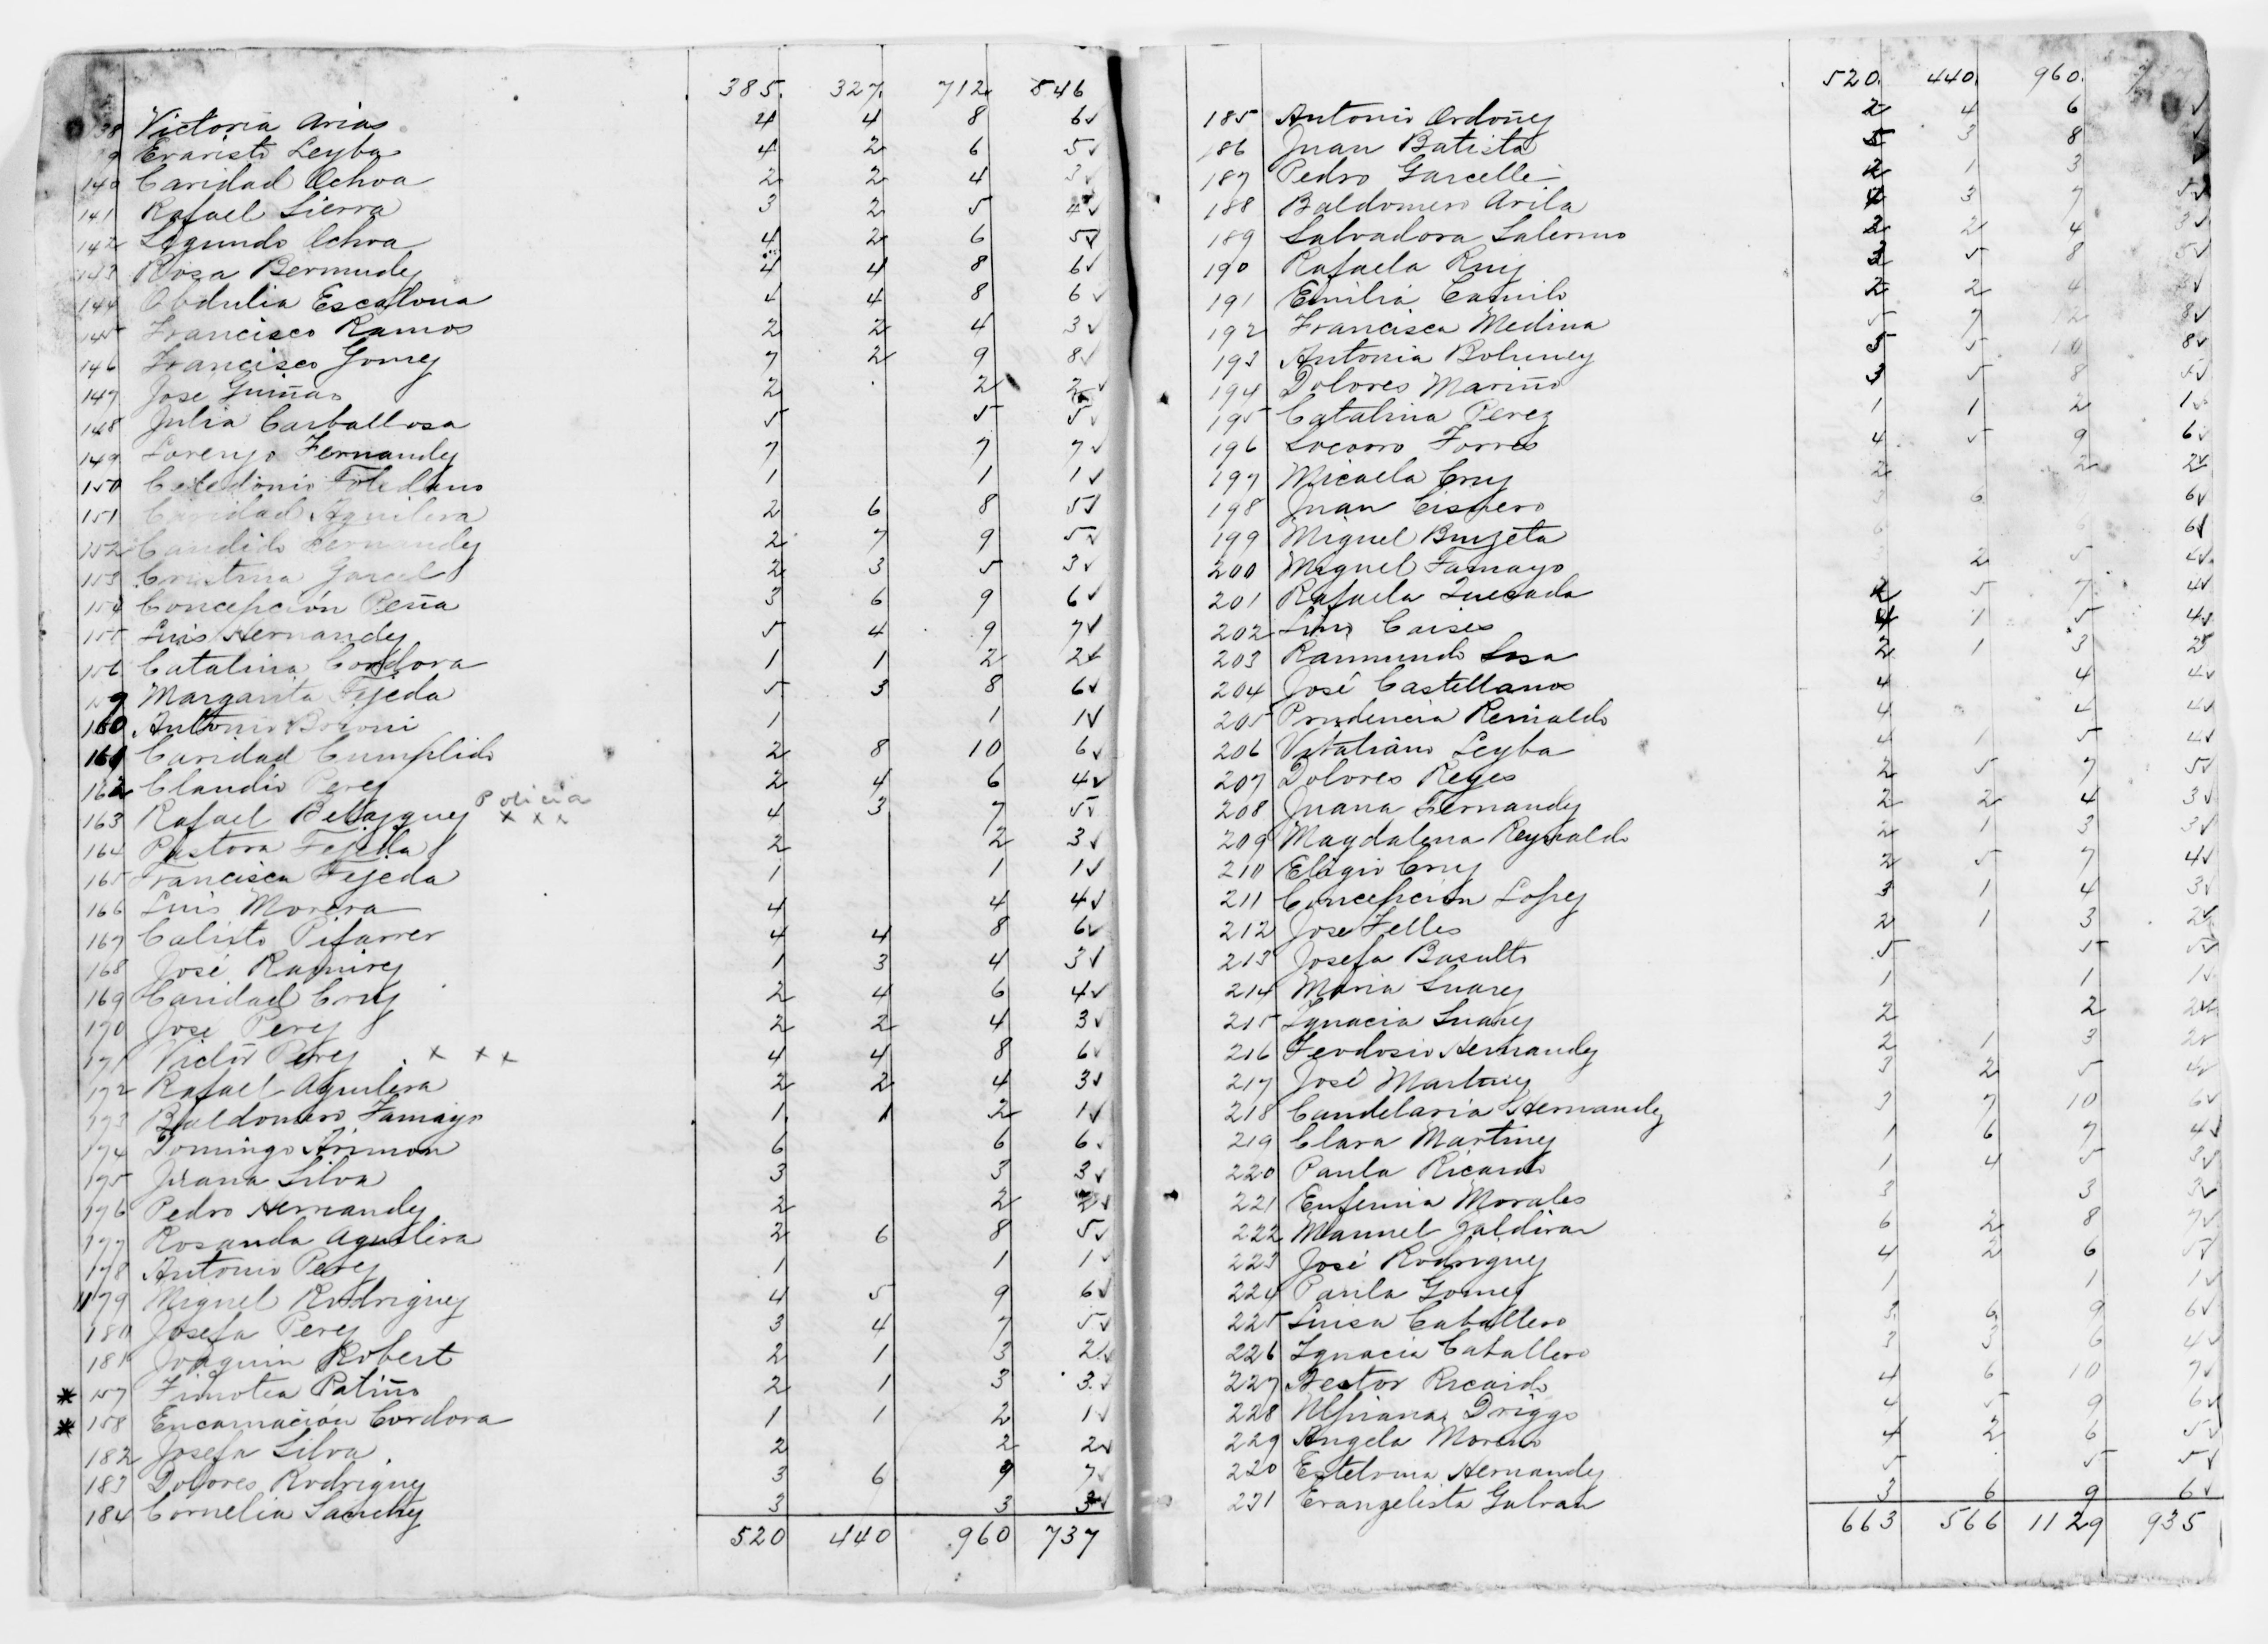 385. 327. 712. 546
138 Victoria Arias 4 4 8 6✓
9 Evaristo Leyba 4 2 6 5✓
140 Caridad Ochoa 2 2 4 3✓
141 Rafael Sierra 3 2 5 4✓
142 Segundo Ochoa 4 2 6 5✓
143 Rosa Bermudez 4 4 8 6✓
144 Obdulia Escalona 4 4 8 6✓
145 Francisco Ramos 2 2 4 3✓
146 Francisco Gomez 7 2 9 8✓
147 Jose Guiñas 2 2 2✓
148 Julia Carballosa 5 5 5✓
149 Lorenzo Fernandez 7 7 7✓
150 Celedonio Toledano 1 1 1✓
151 Caridad Aguilera 2 6 8 5✓
152 Candido Fernandez 2 7 9 5✓
153 Cristina Garcel 2 3 5 3✓
154 Concepción Peña 3 6 9 6✓
155 Luis Hernandez 5 4 9 7✓
156 Catalina Cordova 1 1 2 2✓
159 Margarita Tejeda 5 3 8 6✓
160 Antonio 1 1 1✓
161 Caridad Cumplido 2 8 10 6✓
162 Claudio Perez 2 4 6 4✓
163 Rafael Belazquez Policia x x x 4 3 7 5✓
164 Pastora Tejeda 2 2 3✓
165 Francisca Tejeda 1 1 1✓
166 Luis Morera 4 4 4✓
167 Calisto Pifarrer 4 4 8 6✓
168 José Ramirez 1 3 4 3✓
169 Caridad Cruz 2 4 6 4✓
170 Jose Perez 2 2 4 3✓
171 Victor Perez x x x 4 4 8 6✓
172 Rafael Aguilera 2 2 4 3✓
173 Baldomero Tamayo 1 1 2 1✓
174 Domingo Arimon 6 6 6✓
175 Juana Silva 3 3 3✓
176 Pedro Hernandez 2 2 2✓
177 Rosanda Aguilera 2 6 8 5✓
178 Antonio Perez 1 1 1✓
179 Miguel Rodriguez 4 5 9 6✓
180 Josefa Perez 3 4 7 5✓
181 Joaquin Robert 2 1 3 2✓
* 157 Timotea Patiño 2 1 3 3✓
* 158 Encarnación Cordova 1 1 2 1✓
182 Josefa Silva 2 2 2✓
183 Dolores Rodriguez 3 6 9 7✓
184 Cornelia Sanchez 3 3 3✓
520 440 960 737
520. 440. 960.
185 Antonio Ordoñez 2 4 6 ✓
186 Juan Batista 5 3 8 ✓
187 Pedro Garcelle 2 1 3 ✓
188 Baldomero Avila 4 3 7 5✓
189 Salvadora Salermo 2 2 4 3✓
190 Rafaela Ruiz 3 5 8 5✓
191 Emilia Camilo 2 2 4 ✓
192 Francisca Medina 5 7 12 8✓
193 Antonia 5 5 10 8✓
194 Dolores Mariño 3 5 8 ✓
195 Catalina Perez 1 1 2 1✓
196 Socorro Torres 4 5 9 6✓
197 Micaela Cruz 2 2 2✓
198 Juan Cisnero 3 6 6✓
199 Miguel Buzeta 6 6 6✓
200 Miguel Tamayo 2 5 4✓
201 Rafaela Quesada 2 5 7 4✓
202 Lino Caises 4 1 5 4✓
203 Raimundo Sosa 2 1 3 2✓
204 José Castellanos 4 4 4✓
205 Prudencia Reinaldo 4 4 4✓
206 Vitaliano Leyba 4 1 5 4✓
207 Dolores Reyes 2 5 7 5✓
208 Juana Fernandez 2 2 4 3✓
209 Magdalena Reynaldo 2 1 3 3✓
210 Eligio Cruz 2 5 7 4✓
211 Concepcion Lopez 3 1 4 3✓
212 Jose Telles 2 1 3 2✓
213 Josefa Basulto 5 5 5✓
214 Maria Suarez 1 1 1✓
215 Ignacia Suarez 2 2 2✓
216 Teodosio Hernandez 2 1 3 2✓
217 José Martinez 3 2 5 4✓
218 Candelaria Hernandez 3 7 10 6✓
219 Clara Martinez 1 6 7 4✓
220 Paula Ricardo 1 4 5 3✓
221 Eufemia Morales 3 3 3✓
222 Manuel Zaldivar 6 2 8 7✓
223 José Rodriguez 4 2 6 5✓
224 Paula Gomez 1 1 1✓
225 Luisa Caballero 3 6 9 6✓
226 Ignacia Caballero 3 3 6 4✓
227 Nestor Ricardo 4 6 10 7✓
228 Ulpiana Driggs 4 5 9 6✓
229 Angela Moreno 4 2 6 5✓
220 Estelvina Hernandez 5 5 5✓
231 Evangelista Galvan 3 6 9 6✓
663 566 1129 935